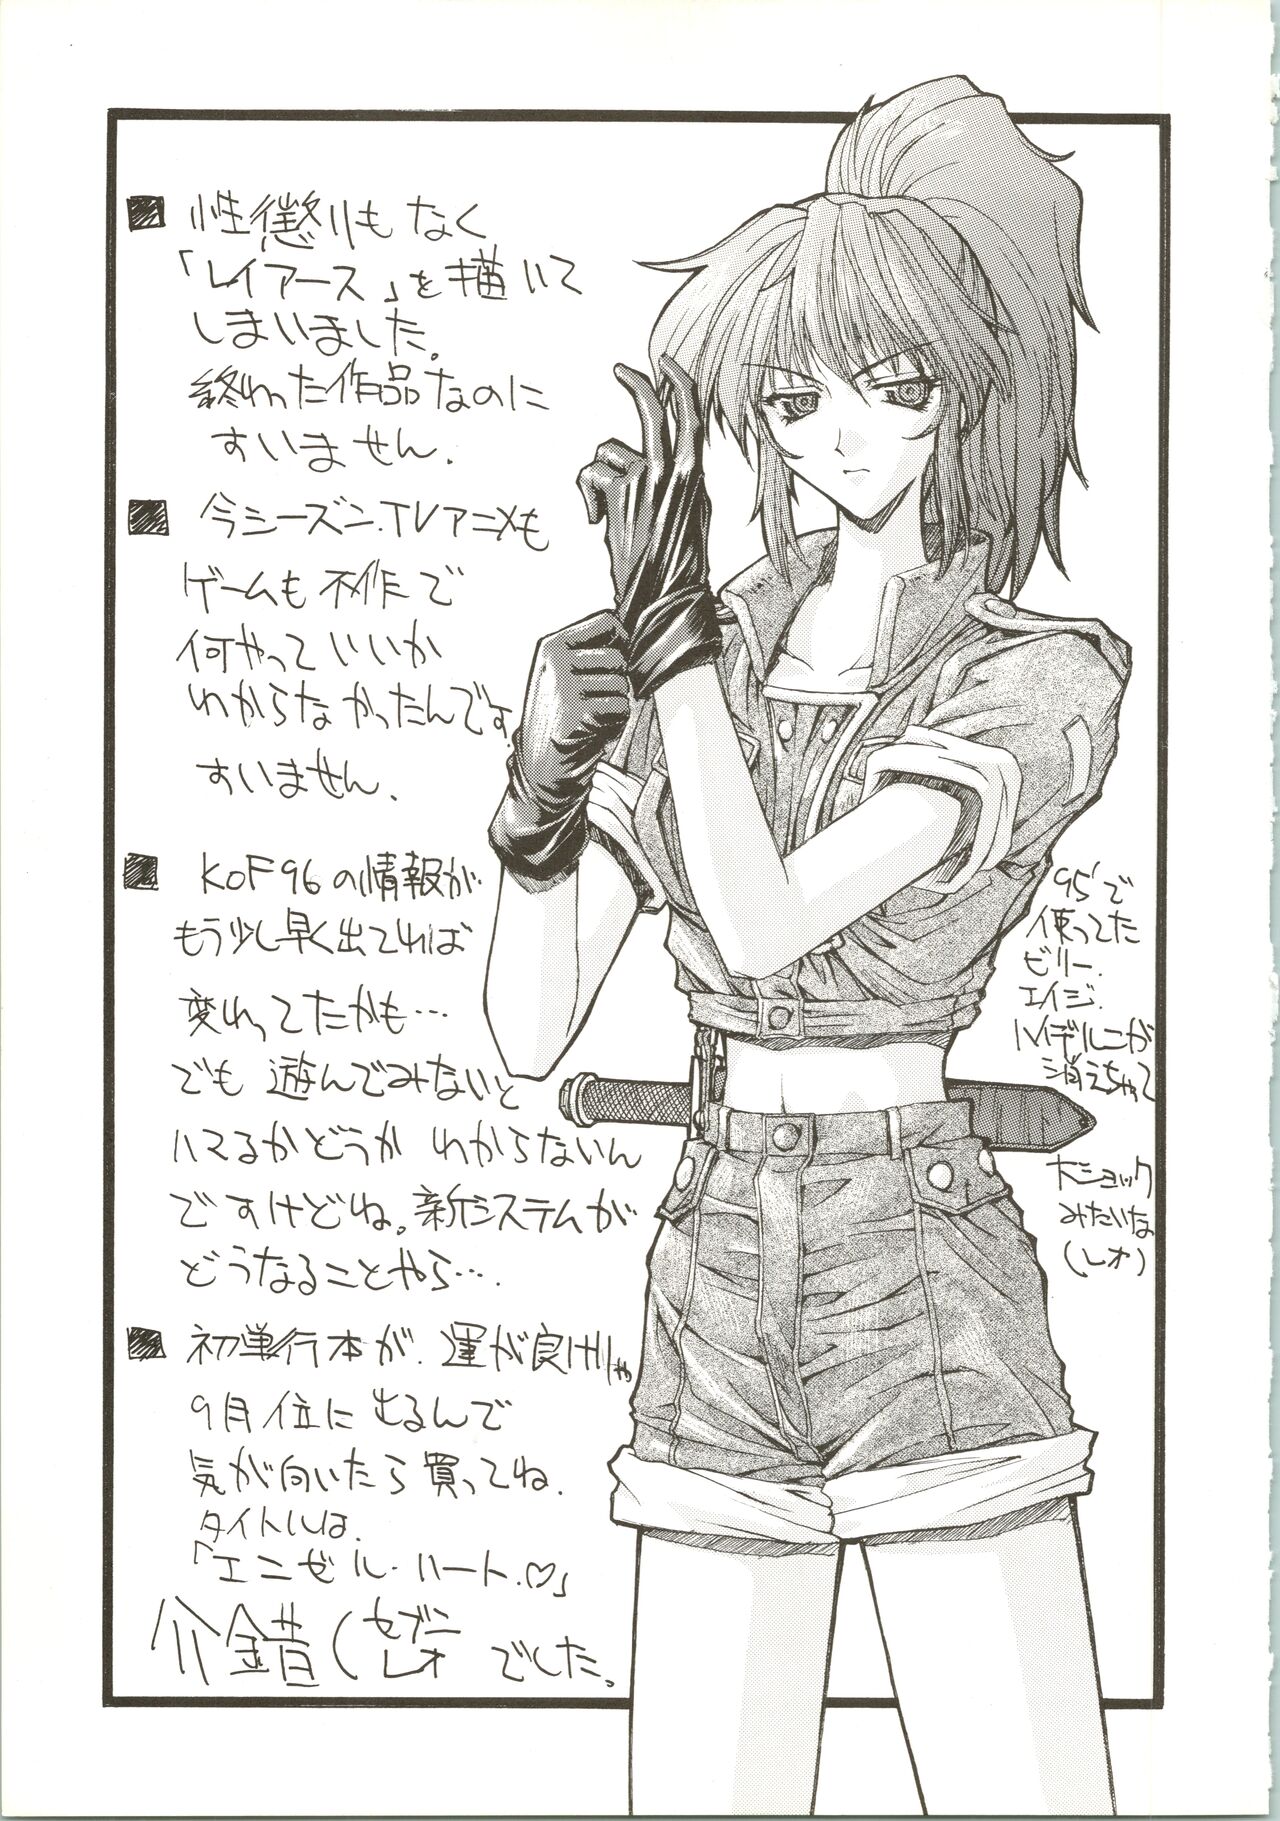 ■ 性懲りもなく
「レイアース」を描いて
しまいました。
終わった作品なのに
すいません.
■ 今シーズン.TVアニメも
ゲームも不作で
何やっていいか
わからなかったんです.
すいません.
■ KOF96の情報が
もう少し早く出てれば
変わってたかも…
でも遊んでみないと
ハマるかどうかわからないん
ですけどね。新システムが
どうなることやら….
■ 初単行本が.運が良けりゃ
9月位に出るんで
気が向いたら買ってね.
タイトルは.
「エンゼル・ハート.♡」
介錯(セブン
レオ でした。
95'で
使ってた
ビリー.
エイジ.
ハイデルンが
消えちゃって
大ショック
みたいな
(レオ)